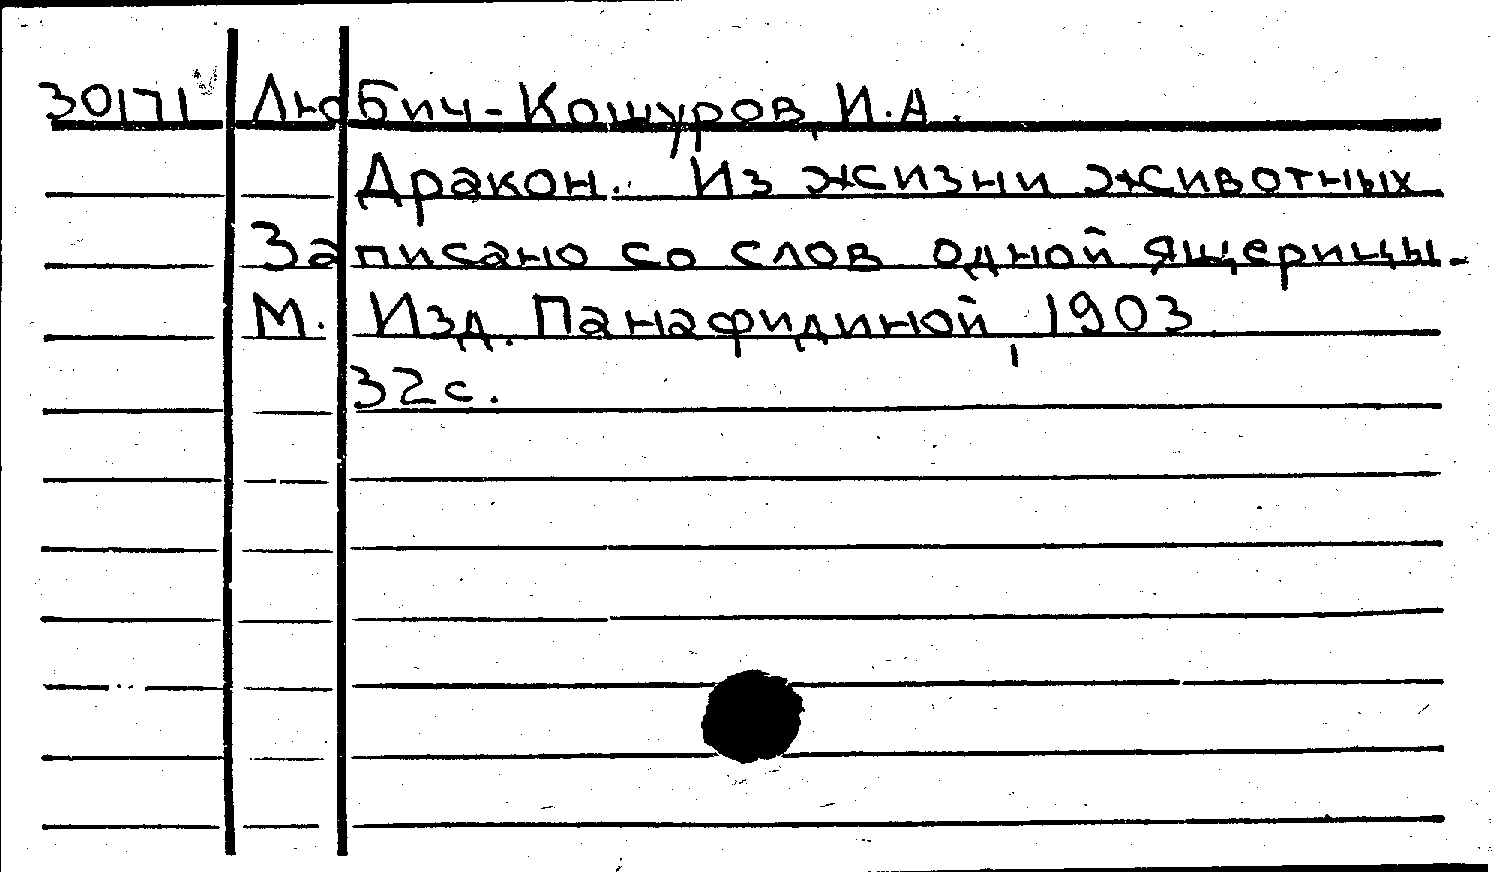 30171 Любич-Кошуров, И.А.
Дракон. Из жизни животных
Записано со слов одной ящерицы.
М. Изд. Панафидиной, 1903
32с.